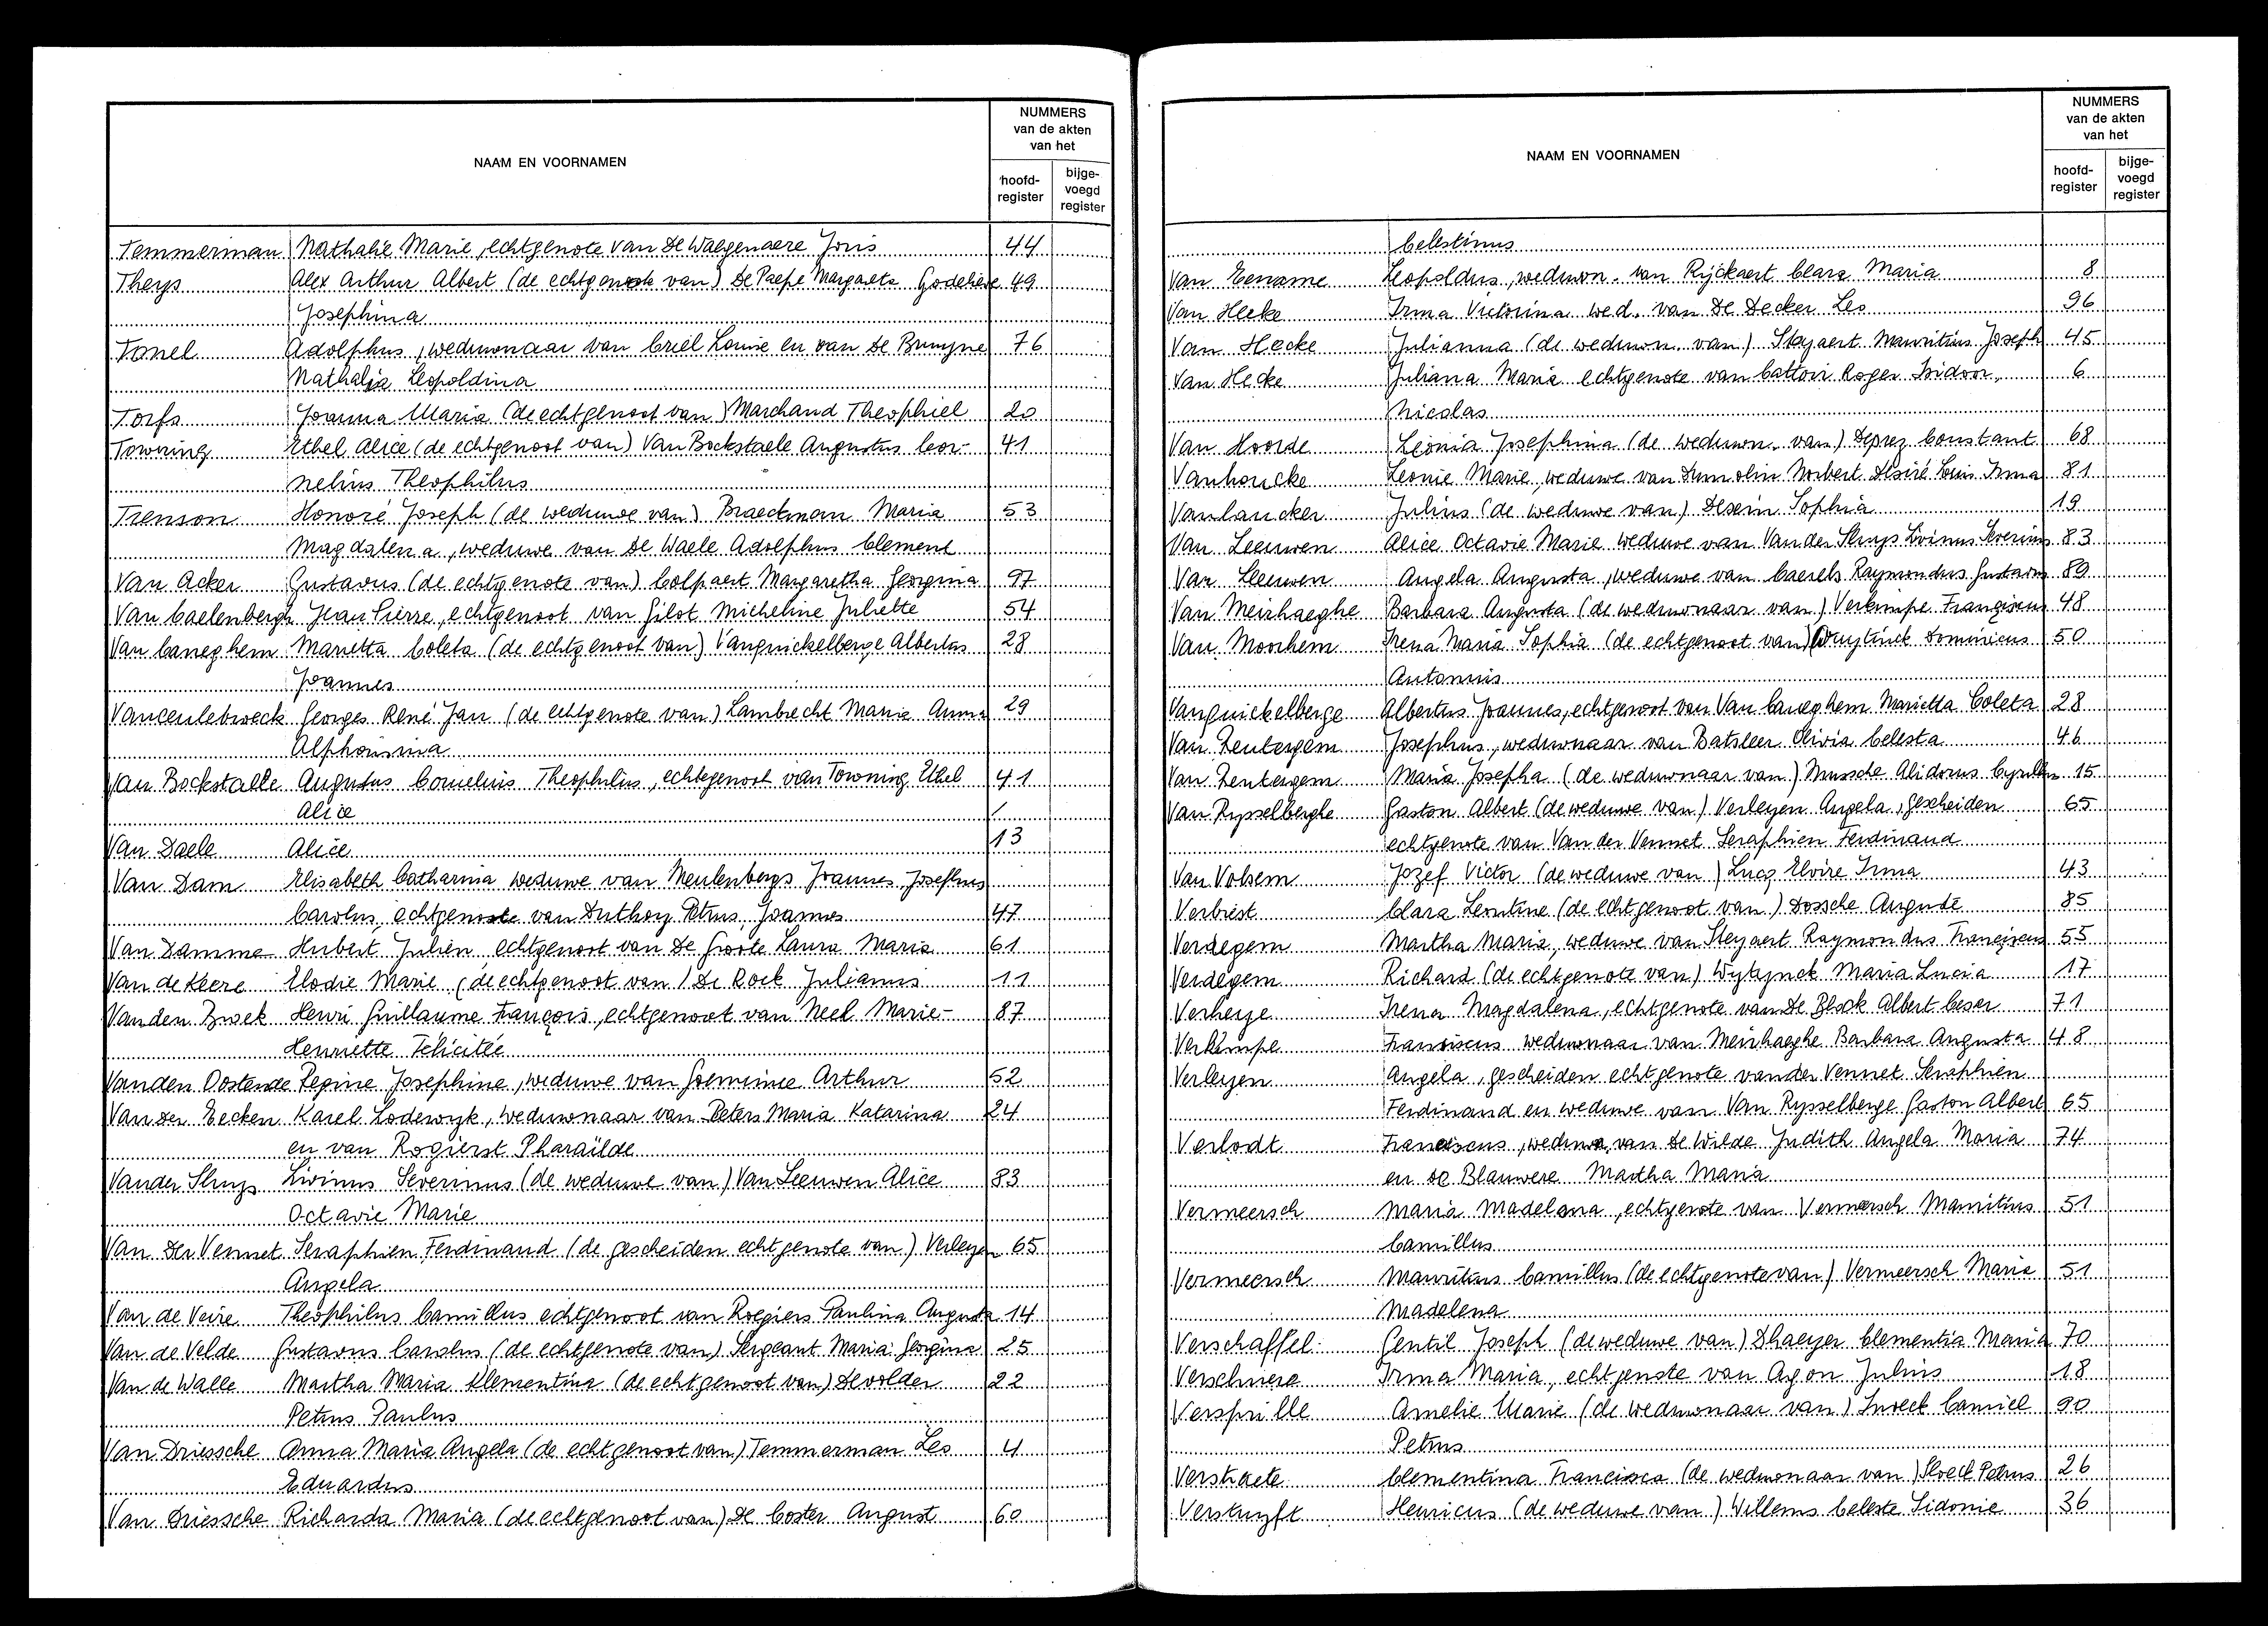 NAAM EN VOORNAMEN
NUMMERS
van de akten
van het
hoofd-
register
bijge-
voegd
register
Temmerman Nathalie Marie, echtgenote van De Waegenaere Joris 44
Theys Alex Arthur Albert (de echtgenote van) De Paepe Margareta Godelieve 49
Josephina
Tonel Adolphus, weduwnaar van Criel Louise en van De Bruyne 76
Nathalia Leopoldina
Torfs Joanna Maria (de echtgenoot van) Marchand Theophiel 20
Towning Ethel Alice (de echtgenoot van) Van Bockstaele Augustus Cor- 41
nelius Theophilus
Trenson Honoré Joseph (de weduwe van) Braeckman Maria 53
Magdalena, weduwe van De Waele Adolphus Clement
Van Acker Gustavus (de echtgenote van) Colpaert Margaretha Georgina 97
Van Caelenbergh Jean Pierre, echtgenoot van Gilot Micheline Juliette 54
Van Caneghem Marietta Coleta (de echtgenoot van) Vanquickelberge Albertus 28
Joannes
Vanceulebroeck Georges René Jan (de echtgenote van) Lambrecht Maria Anna 29
Alphonsina
Van Bockstaele Augustus Cornelius Theophilus, echtgenoot van Towning Ethel 41
Alice /
Van Daele Alice 13
Van Dam Elisabeth Catharina weduwe van Meulenbergs Joannes Josephus
Carolus, echtgenote van Duthoy Petrus Joannes 47
Van Damme Hubert Julien echtgenoot van De Groote Laura Maria 61
Van de Keere Elodie Marie (de echtgenoot van) De Rock Julianus 11
Vanden Broek Henri Guillaume François, echtgenoot van Neel Marie- 87
Henriette Félicitée
Vanden Oostende Pepine Josephine, weduwe van Goeminne Arthur 52
Van Der Eecken Karel Lodewyk, weduwnaar van Peters Maria Katarina 24
en van Rogierst Pharaïlde
Vander Sluys Livinus Severinus (de weduwe van) Van Leeuwen Alice 83
Octavie Marie
Van Der Vennet Seraphien Ferdinand (de gescheiden echtgenote van) Verleyen 65
Angela
Van de Veire Theophilus Camillus echtgenoot van Rogiers Paulina Augusta 14
Van de Velde Gustavus Carolus (de echtgenote van) Sergeant Maria Georgina 25
Van de Walle Martha Maria Klementina (de echtgenoot van) Devolder 22
Petrus Paulus
Van Driessche Anna Maria Angela (de echtgenoot van) Temmerman Leo 4
Eduardus
Van Driessche Richarda Maria (de echtgenoot van) De Coster August 60
NAAM EN VOORNAMEN
NUMMERS
van de akten
van het
hoofd-
register
bijge-
voegd
register
Celestinus
Van Eename Leopoldus, weduwn. van Rijckaert Clara Maria 8
Van Hecke Irma Victorina wed. van De Decker Leo 96
Van Hecke Julianna (de weduwn. van) Steyaert Mauritius Joseph 45
Van Hecke Juliana Maria echtgenote van Cattoir Roger Isidoor, 6
Nicolas
Van Hoorde Leonia Josephina (de weduwn. van) Deprez Constant 68
Vanhoucke Leonie Marie, weduwe van Dumolin Norbert Désiré Louis Irma 81
Vanlancker Julius (de weduwe van) Desein Sophia 19
Van Leeuwen Alice Octavie Marie weduwe van Vander Sluys Livinus Severinus 83
Van Leeuwen Angela Augusta, weduwe van Caerels Raymondus Gustavus 89
Van Meirhaeghe Barbara Augusta (de weduwnaar van) Verkimpe Franciscus 48
Van Moorhem Irena Maria Sophia (de echtgenoot van) Wuytinck Dominicus 50
Antonius
Vanquickelberge Albertus Joannes, echtgenoot van Van Caneghem Marietta Coleta 28
Van Rentergem Josephus, weduwnaar van Batsleer Olivia Celesta 46
Van Rentergem Maria Josepha (de weduwnaar van) Mussche Alidorus Cyrillus 15
Van Rysselberghe Gaston Albert (de weduwe van) Verleyen Angela, gescheiden 65
echtgenote van Van der Vennet Seraphien Ferdinand
Van Volsem Jozef Victor (de weduwe van) Lucq Elvire Irma 43
Verbiest Clara Leontine (de echtgenoot van) Dossche Auguste 85
Verdegem Martha Maria, weduwe van Steyaert Raymondus Franciscus 55
Verdegem Richard (de echtgenote van) Wytynck Maria Lucia 17
Verhege Irena Magdalena, echtgenote van De Block Albert Cesar 71
Verkimpe Franciscus weduwnaar van Meirhaeghe Barbara Augusta 48
Verleyen Angela, gescheiden echtgenote vander Vennet Seraphien
Ferdinand en weduwe van Van Rysselberge Gaston Albert 65
Verlodt Franciscus, weduwn. van De Wilde Judith Angela Maria 74
en De Blauwere Martha Maria
Vermeersch Maria Madelena, echtgenote van Vermeersch Mauritius 51
Camillus
Vermeersch Mauritius Camillus (de echtgenote van) Vermeersch Maria 51
Madelena
Verschaffel Gentil Joseph (de weduwe van) Dhaeyer Clementia Maria 70
Verschuere Irma Maria, echtgenote van Agon Julius 18
Versprille Amelie Marie (de weduwnaar van) Snoeck Camiel 90
Petrus
Verstraete Clementina Francisca (de weduwnaar van) Stoeck Petrus 26
Verstuyft Henricus (de weduwe van) Willems Celeste Sidonie 36